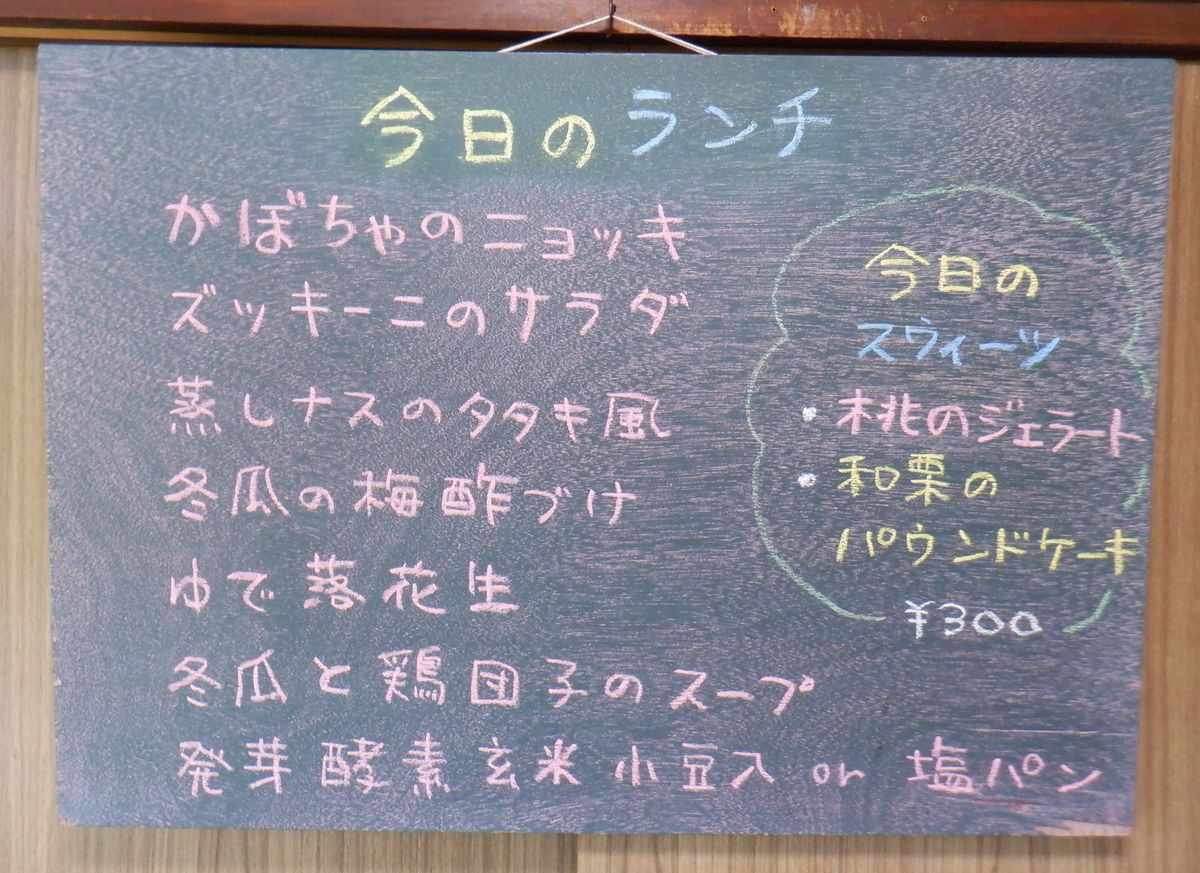 今日のランチ
かぼちゃのニョッキ
ズッキーニのサラダ
蒸しナスのタタキ風
冬瓜の梅酢づけ
ゆで落花生
冬瓜と鶏団子のスープ
発芽酵素玄米小豆入 or 塩パン
今日の
スウィーツ
・桃のジェラート
・和栗の
パウンドケーキ
¥300